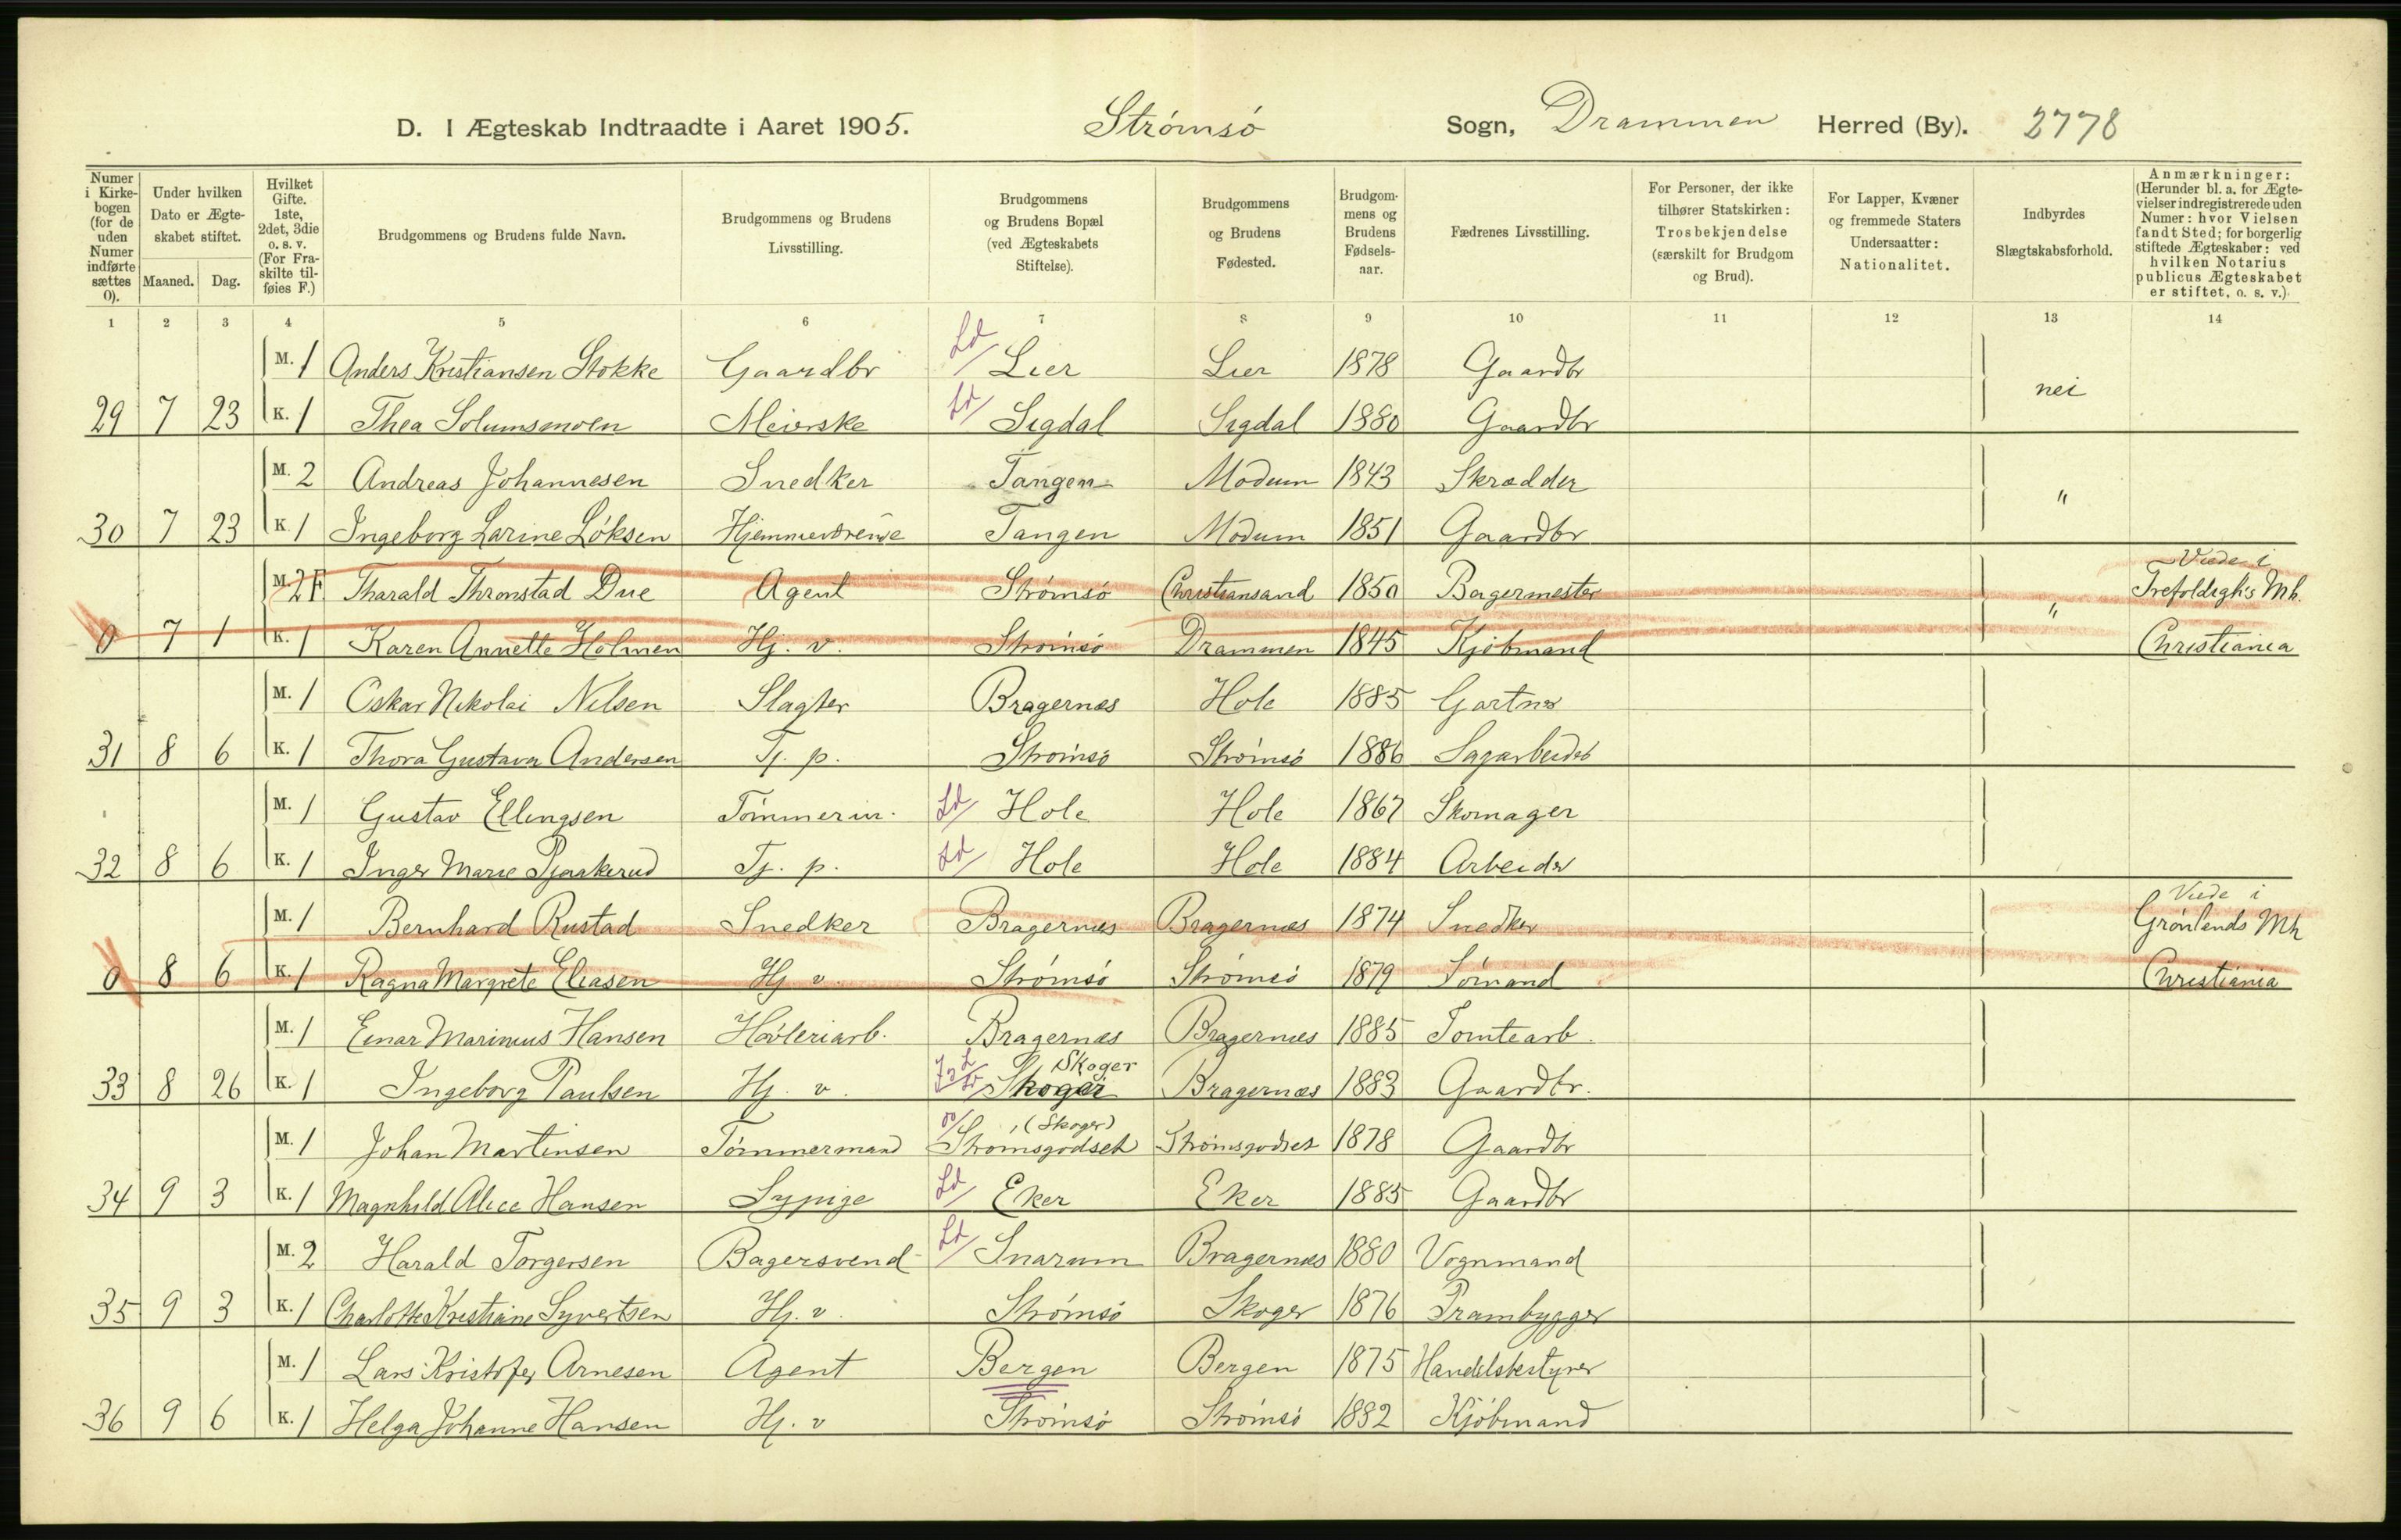 D. I Ægteskab Indtraadte i Aaret 1905. Strømsö Sogn, Drammen Herred (By). 2778
Numer i Kirkebogen (for de uden Numer indførte sættes 0).
Under hvilken Dato er Ægteskabet stiftet.
Maaned. Dag.
Hvilket Gifte. 1ste, 2det, 3die o. s. v. (For Fraskilte tilføies F.)
Brudgommens og Brudens fulde Navn.
Brudgommens og Brudens Livsstilling.
Brudgommens og Brudens Bopæl (ved Ægteskabets Stiftelse).
Brudgommens og Brudens Fødested.
Brudgommens og Brudens Fødselsaar.
Fædrenes Livsstilling.
For Personer, der ikke tilhører Statskirken: Trosbekjendelse (særskilt for Brudgom og Brud).
For Lapper, Kvæner og fremmede Staters Undersaatter: Nationalitet.
Indbyrdes Slægtskabsforhold.
Anmærkninger: (Herunder bl. a. for Ægtevielser indregistrerede uden Numer: hvor Vielsen fandt Sted; for borgerlig stiftede Ægteskaber: ved hvilken Notarius publicus Ægteskabet er stiftet, o. s. v.).
1 2 3 4 5 6 7 8 9 10 11 12 13 14
M. 1 Anders Kristiansen Stokke Gaardbr Ld Lier Lier 1878 Gaardbr nei
29 7 23 K. 1 Thea Solumsmoen Meierske Ld Sigdal Sigdal 1880 Gaardbr
M. 2 Andreas Johannesen Snedker Tangen Modum 1843 Skrædder "
30 7 23 K. 1 Ingeborg Larine Löksen Hjemmeværende Tangen Modum 1851 Gaardbr
M. 2 F. Tharald Thronstad Due Agent Strömsö Christiansand 1850 Bagermester " Viede i Trefoldigh's Mh.
0 7 1 K. 1 Karen Annette Holmen Hj. v. Strömsö Drammen 1845 Kjöbmand Christiania
M. 1 Oskar Nikolai Nilsen Slagter Bragernæs Hole 1885 Gartner
31 8 6 K. 1 Thora Gustava Andersen Tj. p. Strömsö Strömsö 1886 Sagarbeider
M. 1 Gustav Ellingsen Tömmerm. Ld Hole Hole 1867 Skomager
32 8 6 K. 1 Inger Marie Pjaakerud Tj. p. Ld Hole Hole 1884 Arbeider
M. 1 Bernhard Rustad Snedker Bragernæs Bragernæs 1874 Snedker Viede i Grönlands Mh
0 8 6 K. 1 Ragna Margrete Eliasen Hj v. Strömsö Strömsö 1879 Sömand Christiania
M. 1 Einar Marinius Hansen Hövleriarb. Bragernæs Bragernæs 1885 Tomtearb.
33 8 26 K. 1 Ingeborg Paulsen Hj. v. Skoger Skoger Bragernæs 1883 Gaardbr.
M. 1 Johan Martinsen Tömmermand Strömsgodset (Skoger) Strömsgodset 1878 Gaardbr
34 9 3 K. 1 Magnhild Alice Hansen Sypige Ld Eker Eker 1885 Gaardbr
M. 2 Harald Torgersen Bagersvend Ld Snarum Bragernæs 1880 Vognmand
35 9 3 K. 1 Charlotte Kristiane Syvertsen Hj. v. Strömsö Skoger 1876 Prambygger
M. 1 Lars Kristofer Arnesen Agent Bergen Bergen 1875 Handelsbestyrer
36 9 6 K. 1 Helga Johanne Hansen Hj. v Strömsö Strömsö 1882 Kjöbmand